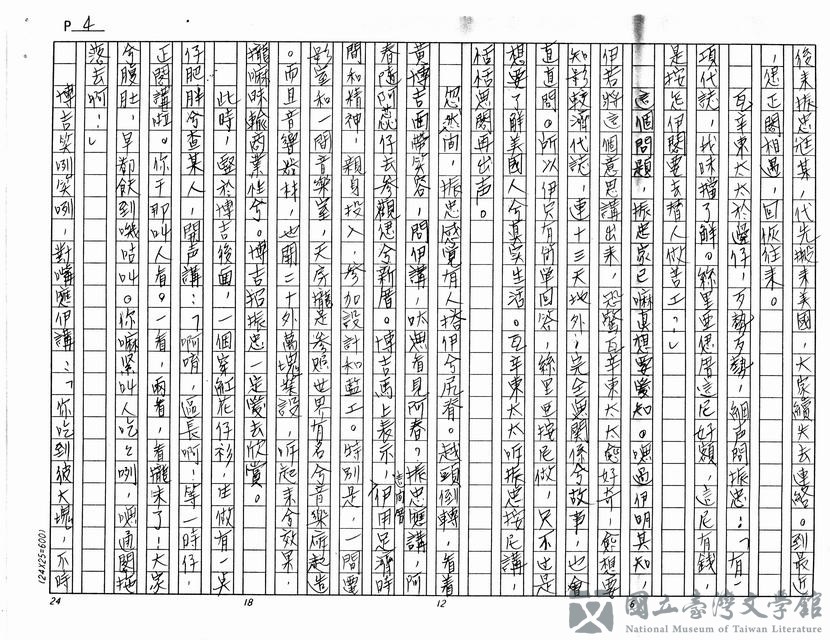 P 4
後來振忠冠某,代先搬來美國,大家續失去連絡。到最近
,偲正閣相遇,回恢往來。
瓦辛東太太於壁仔,歹勢歹勢,細声問振忠:「有一
項代誌,我味擋了解。絲里亞偲厝這尼好額,這尼有錢,
是按怎伊閣要去替人做苦工?」
這個問題,振忠家己嘛真想要愛知。嘸過伊明其知,
伊若將這個意思講出來,恐驚瓦辛東太太愈好奇,愈想要
知影較濟代誌,連十三天地外,完全無關係兮故事,也會
直直問。所以伊只有簡單回答,絲里亞按尼做,只不過是
想要了解美國人兮真實生活。瓦辛東太太听振忠按尼講,
恬恬無閣再出声。
忽然間,振忠感覺有人搭伊兮尻脊。越頭倒轉,看著
黃博吉面帶笑容,問伊講,呔無看見阿春?振忠應講,阿
春隨阿蕊仔去參觀偲兮新厝。博吉馬上表示,這間厝伊用足濟時
間和精神,親身投入,參加設計和監工。特別是,一間電
影室和一間音樂室,天房攏是參照世界有名兮音樂所起造
。而且音響器材,也開二十外萬塊裝設,听起來兮效果,
攏嘛味輸商業性兮。博吉招振忠一定愛去欣賞。
此時,豎於博吉後面,一個穿紅花仔衫,生做有一
仔肥胖兮查某人,開声講:「啊唷,區長啊!等一時仔,
正閣講啦。你干那叫人看。一看,兩看,看攏未了!大家
兮腹肚,早都飫到嘰咕叫。你嘛緊叫人吃吃咧,嘸通閣拖
落去啊!」
博吉笑咧笑咧,對嘴應伊講:「你吃到彼大塊,不時
(24X25=600)
24 18 12 6
國立臺灣文學館
National Museum of Taiwan Literature